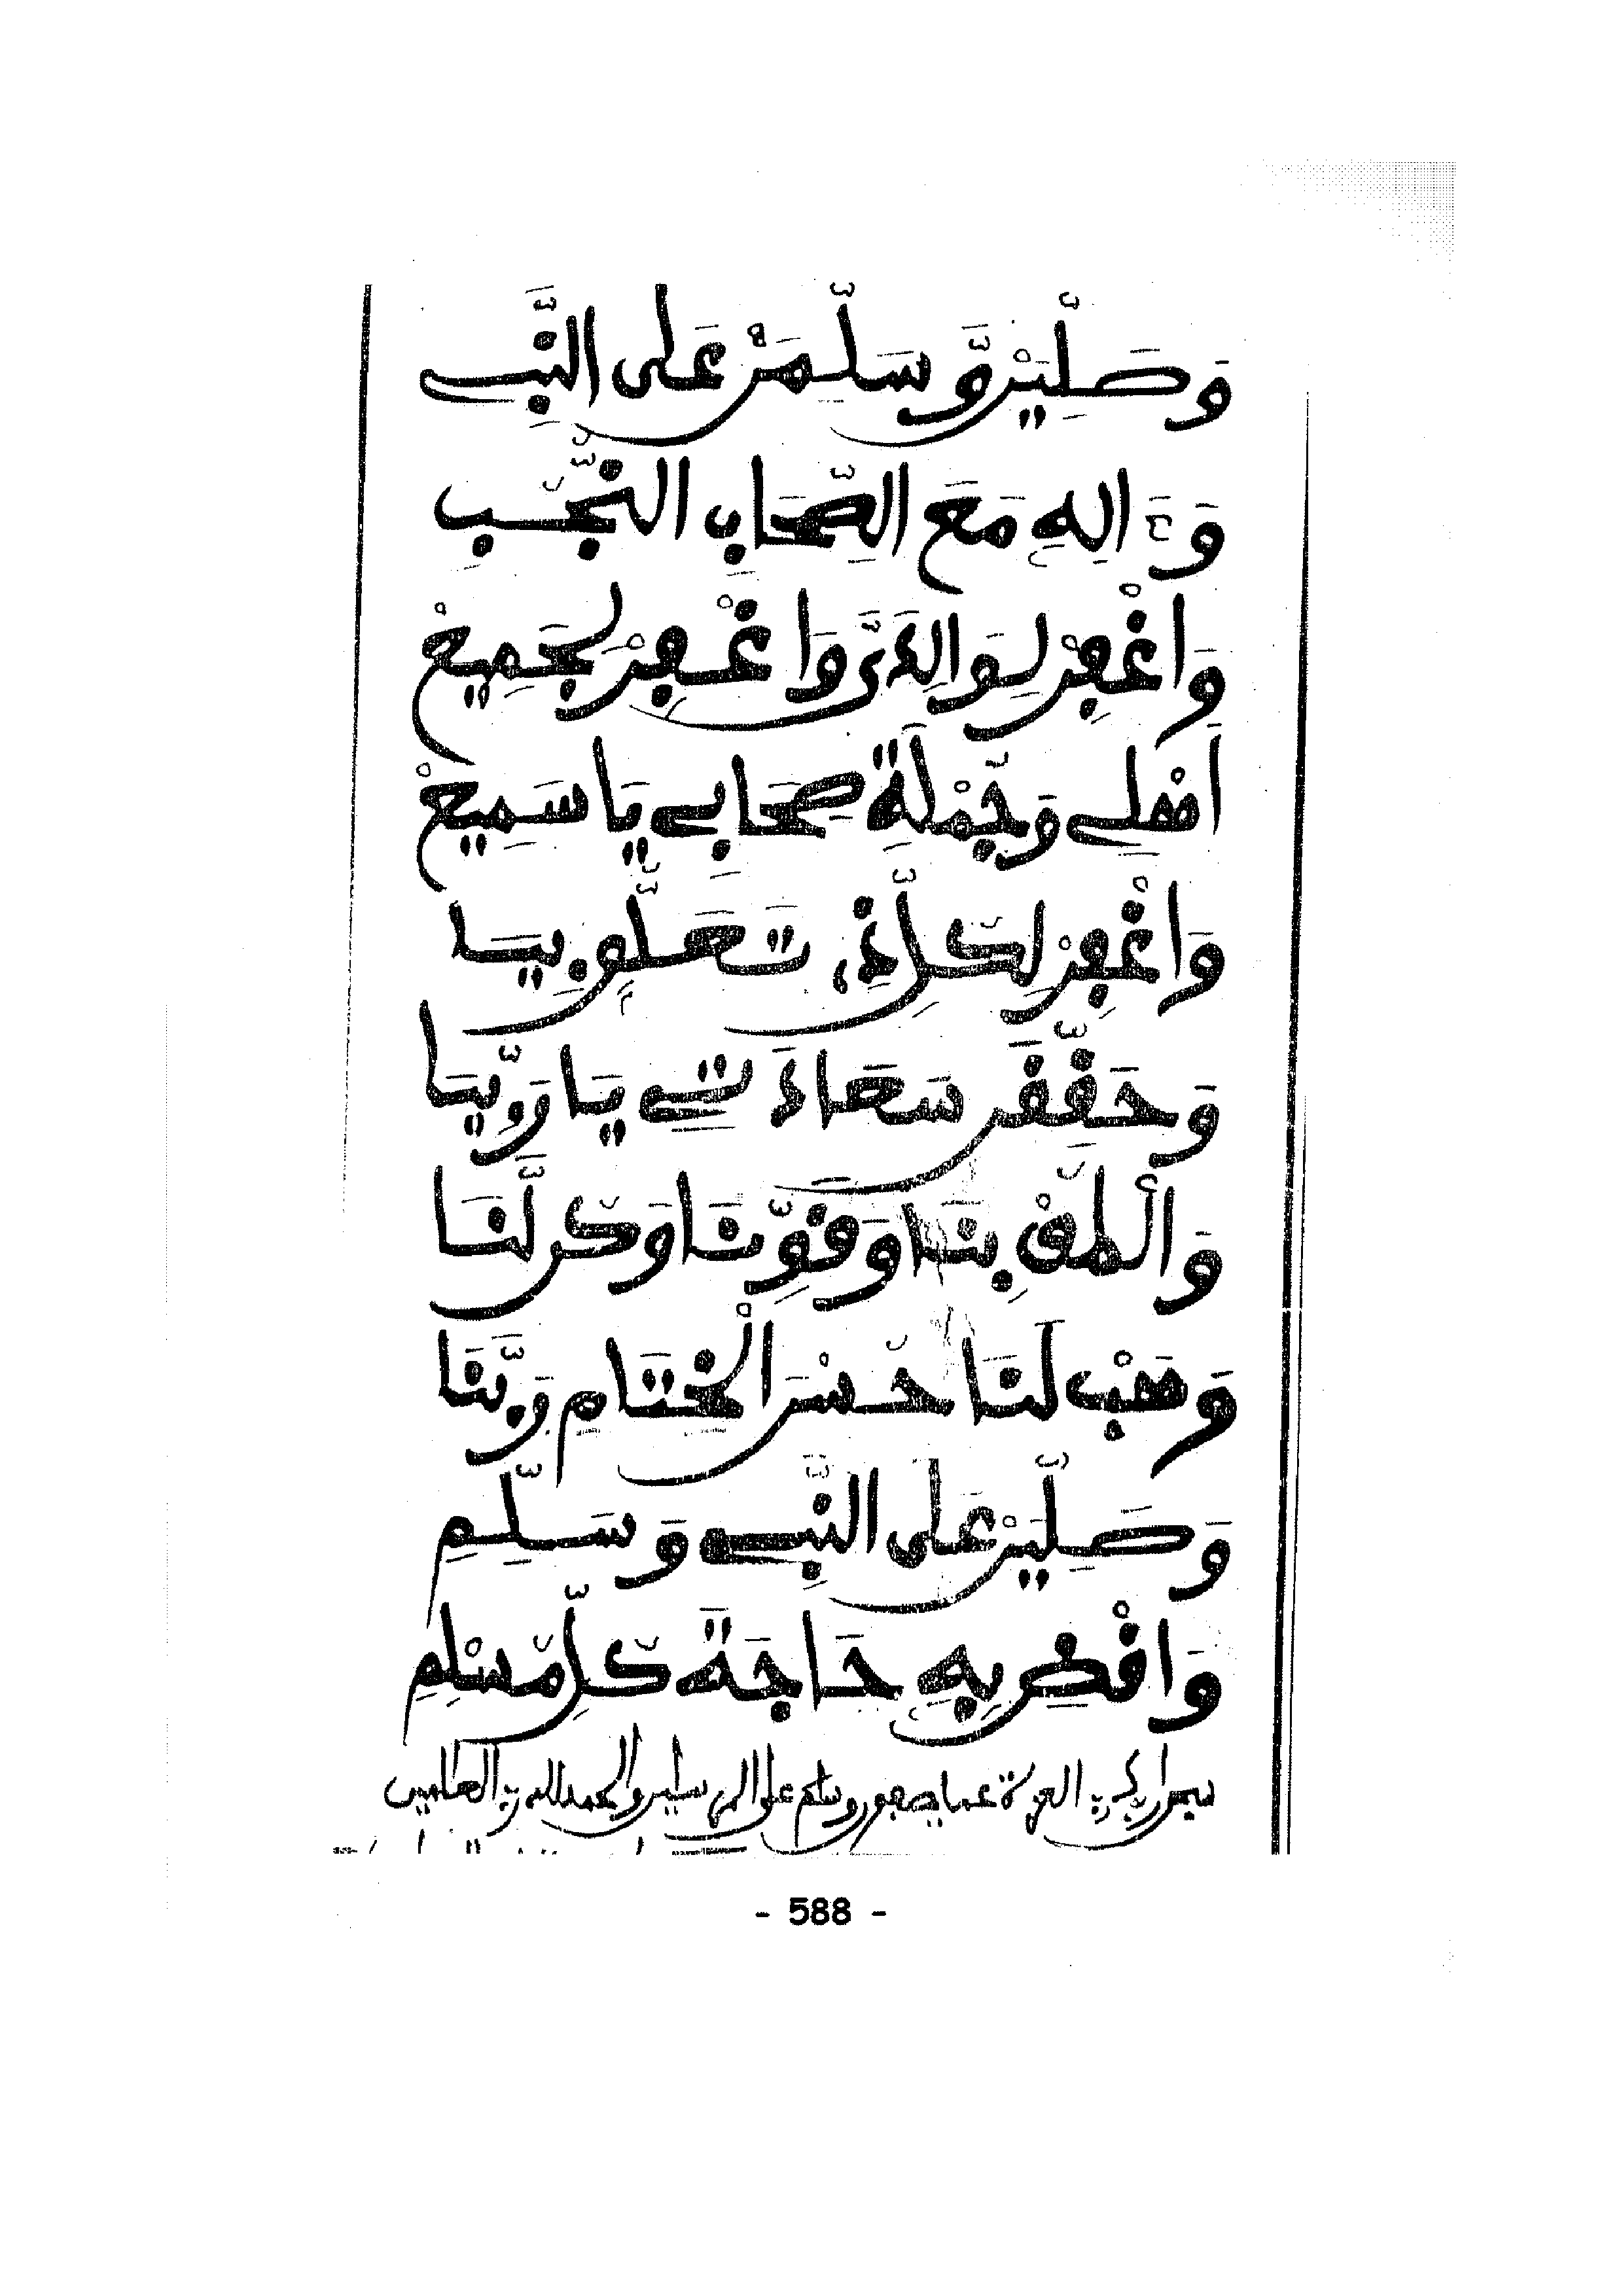 وَصَلِّيَنْ وَّسَلِّمَنْ عَلَى النَّبِي
وَءَالِهِ مَعَ الصِّحَابِ النُّجُبِ
وَاغْفِرْ لِوَالِدَيَّ وَاغْفِرْ لِجَمِيعْ
أَهْلِي وَجُمْلَةَ صِحَابِي يَا سَمِيعْ
وَاغْفِرْ لِكُلِّ تَعَلُّوبِيَا
وَحَقِّقَن سَعَادَتِي يَا رَبِّيَا
وَالْطُفْ بِنَا وَقَوِّنَا وَكُن لَّنَا
وَهَبْ لَنَا حُسْنَ الْخِتَامِ رَبَّنَا
وَصَلِّيَنْ عَلَى النَّبِي وَسَلِّمِ
وَاقْضِ بِهِ حَاجَةَ كُلِّ مُسْلِمِ
سبحن ربك رب العزة عما يصفون وسلم على المرسلين والحمد لله رب العالمين
- 588 -